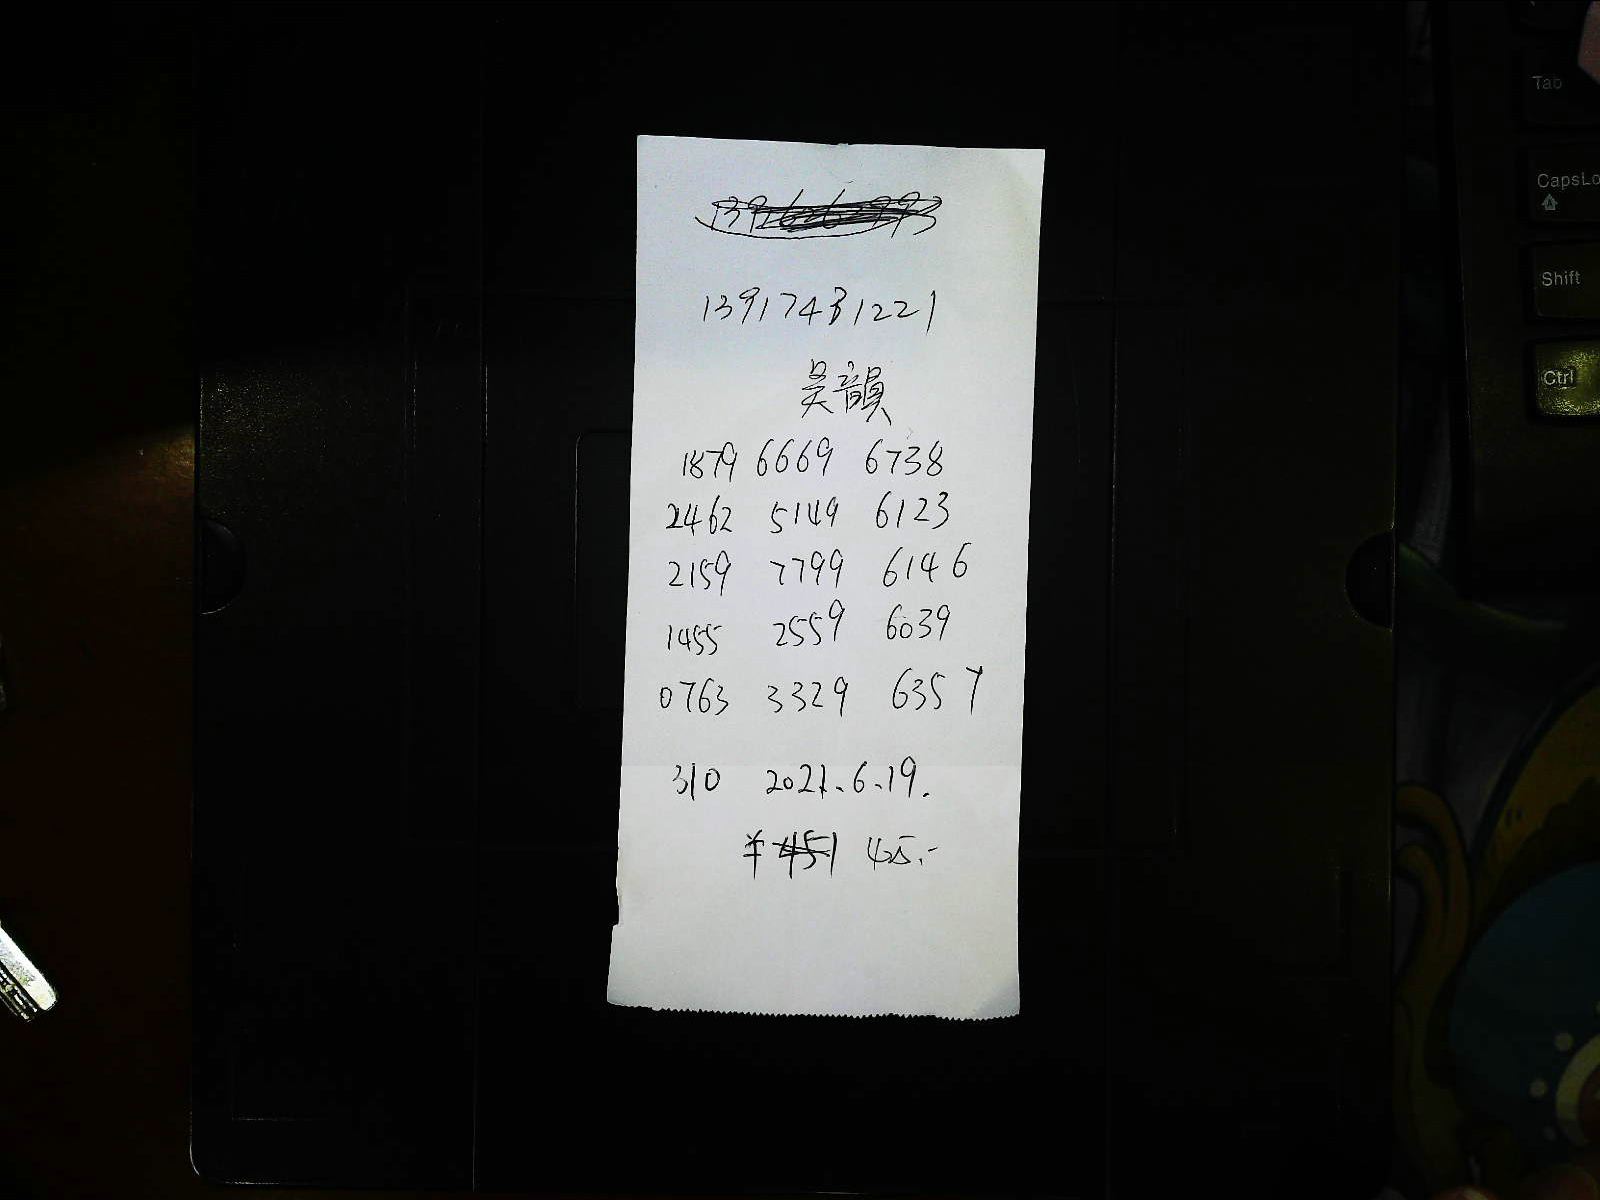 13917431221
吴韻
1879 6669 6738
2462 5149 6123
2159 7799 6146
1455 2559 6039
0763 3329 6357
310 2021.6.19.
¥ 45.-
Tab
CapsLo
Shift
Ctrl